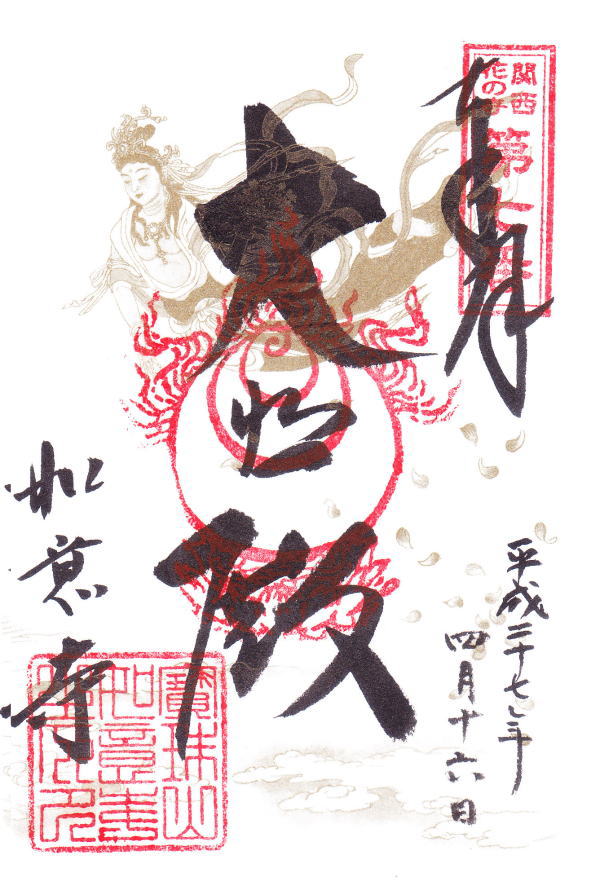 奉拝
関西
花の寺
第七番
大悲殿
平成二十七年
四月十六日
如意寺
寶珠山
如意寺